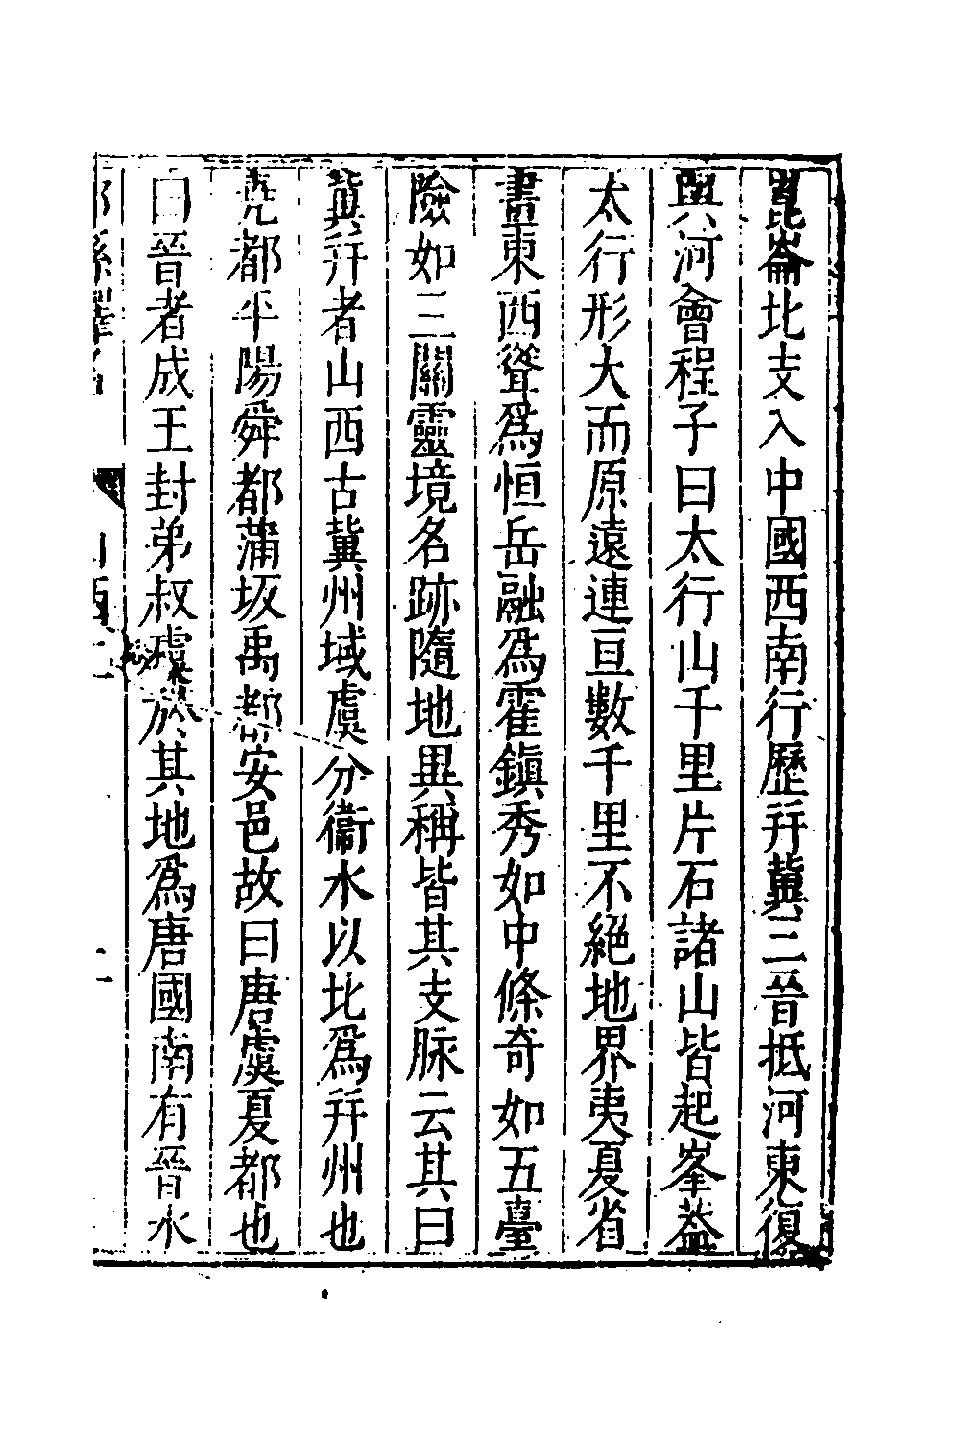 崑崙北支入中國西南行歷幷冀三晉抵河東復
與河會程子曰太行山千里片石諸山皆起峯蓋
太行形大而原遠連亘數千里不絕地界夷夏省
畫東西聳爲恒岳融爲霍鎭秀如中條奇如五臺
險如三關靈境名跡隨地異稱皆其支脉云其曰
冀幷者山西古冀州域虞分衞水以北爲幷州也
堯都平陽舜都蒲坂禹都安邑故曰唐虞夏都也
曰晉者成王封弟叔虞於其地爲唐國南有晉水
郡縣釋名
山西